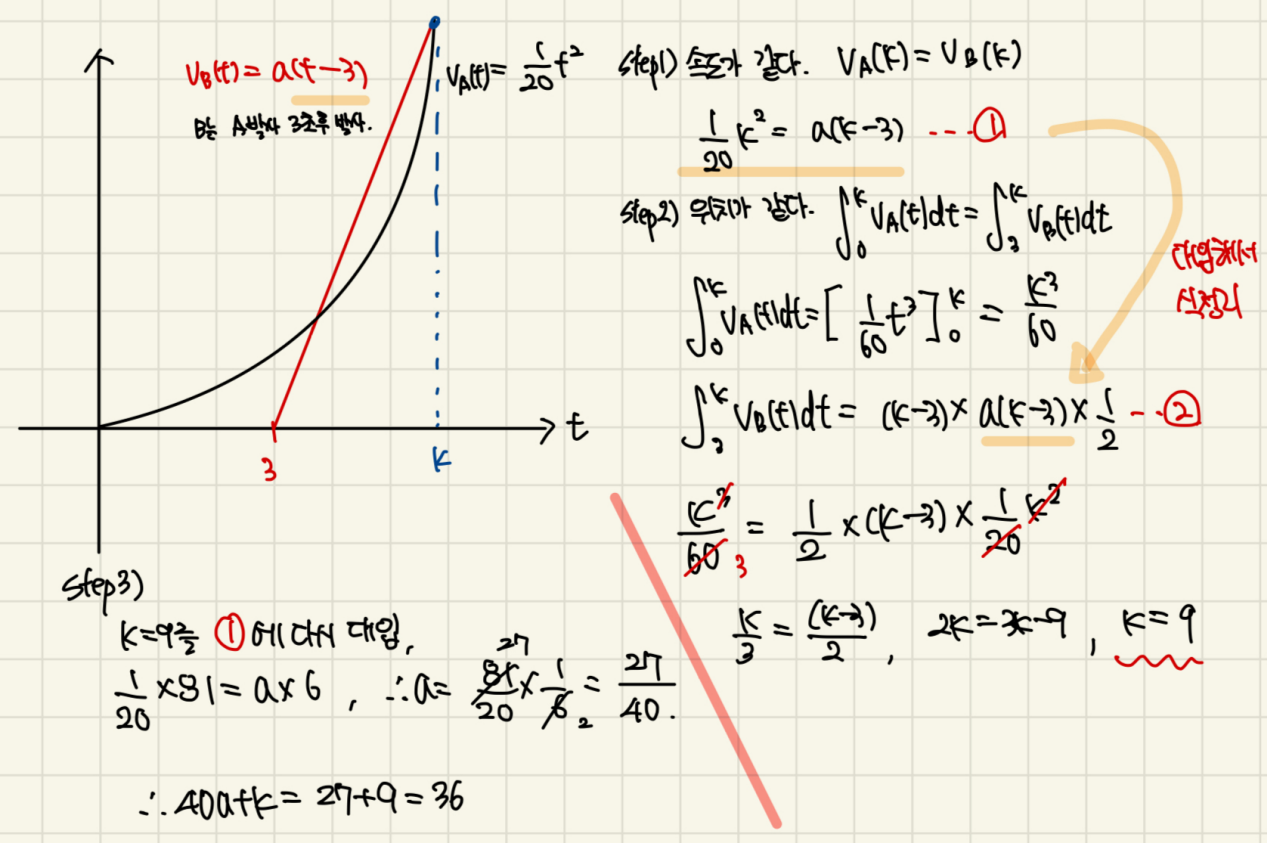 V_B(t) = a(t-3)
B는 A발사 3초후 발사.
V_A(t) = 1/20 t²
t
3
k
step1) 속도가 같다. V_A(k) = V_B(k)
1/20 k² = a(k-3) --- ①
step2) 위치가 같다. ∫₀ᵏ V_A(t)dt = ∫₃ᵏ V_B(t)dt
대입해서
식정리
∫₀ᵏ V_A(t)dt = [1/60 t³]₀ᵏ = k³/60
∫₃ᵏ V_B(t)dt = (k-3) × a(k-3) × 1/2 --- ②
k³/60 = 1/2 × (k-3) × 1/20 k²
3
k/3 = (k-3)/2 , 2k = 3k-9 , k = 9
step3)
k=9를 ① 에 다시 대입.
1/20 × 81 = a × 6 , ∴ a = 81/20 × 1/6 = 27/40 .
27
2
∴ 40a+k = 27+9 = 36